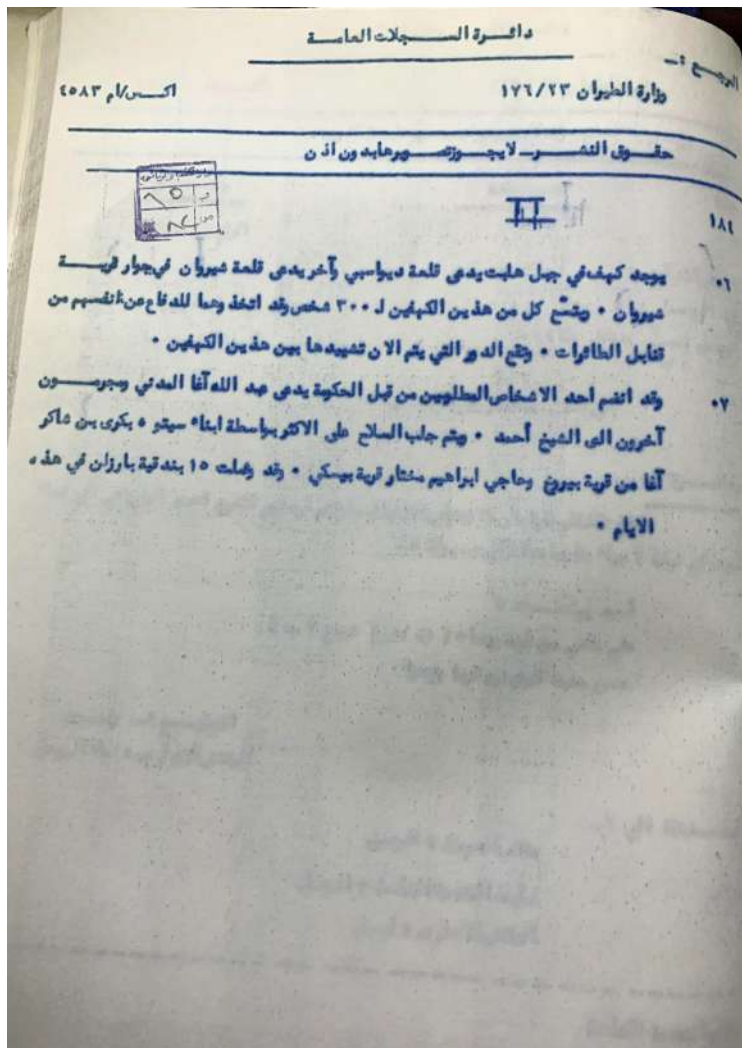 دائرة السجلات العامة
المرجع :-
وزارة الطيران ١٧٦/٢٣ اكس/ام ٤٥٨٣
حقوق النشر لايجوز تصويرها بدون اذن
١٨٤
٠٦ يوجد كهف في جبل هلبت يدعى قلعة ديواسبي وآخر يدعى قلعة شيروان في جوار قرية
شيروان ٠ ويتسع كل من هذين الكهفين لـ ٣٠٠ شخص وقد اتخذ وهما للدفاع عن انفسهم من
قنابل الطائرات ٠ وتقع الدور التي يتم الان تشييدها بين هذين الكهفين ٠
٠٧ وقد انضم احد الاشخاص المطلوبين من قبل الحكومة يدعى عبد الله آغا المدني ومجرمون
آخرون الى الشيخ أحمد ٠ ويتم جلب السلاح على الاكثر بواسطة ابناء سيتو ه بكرى بن شاكر
آغا من قرية بيروخ وحاجي ابراهيم مختار قرية بيسكي ٠ وقد وصلت ١٥ بندقية بارزان في هذه
الايام ٠